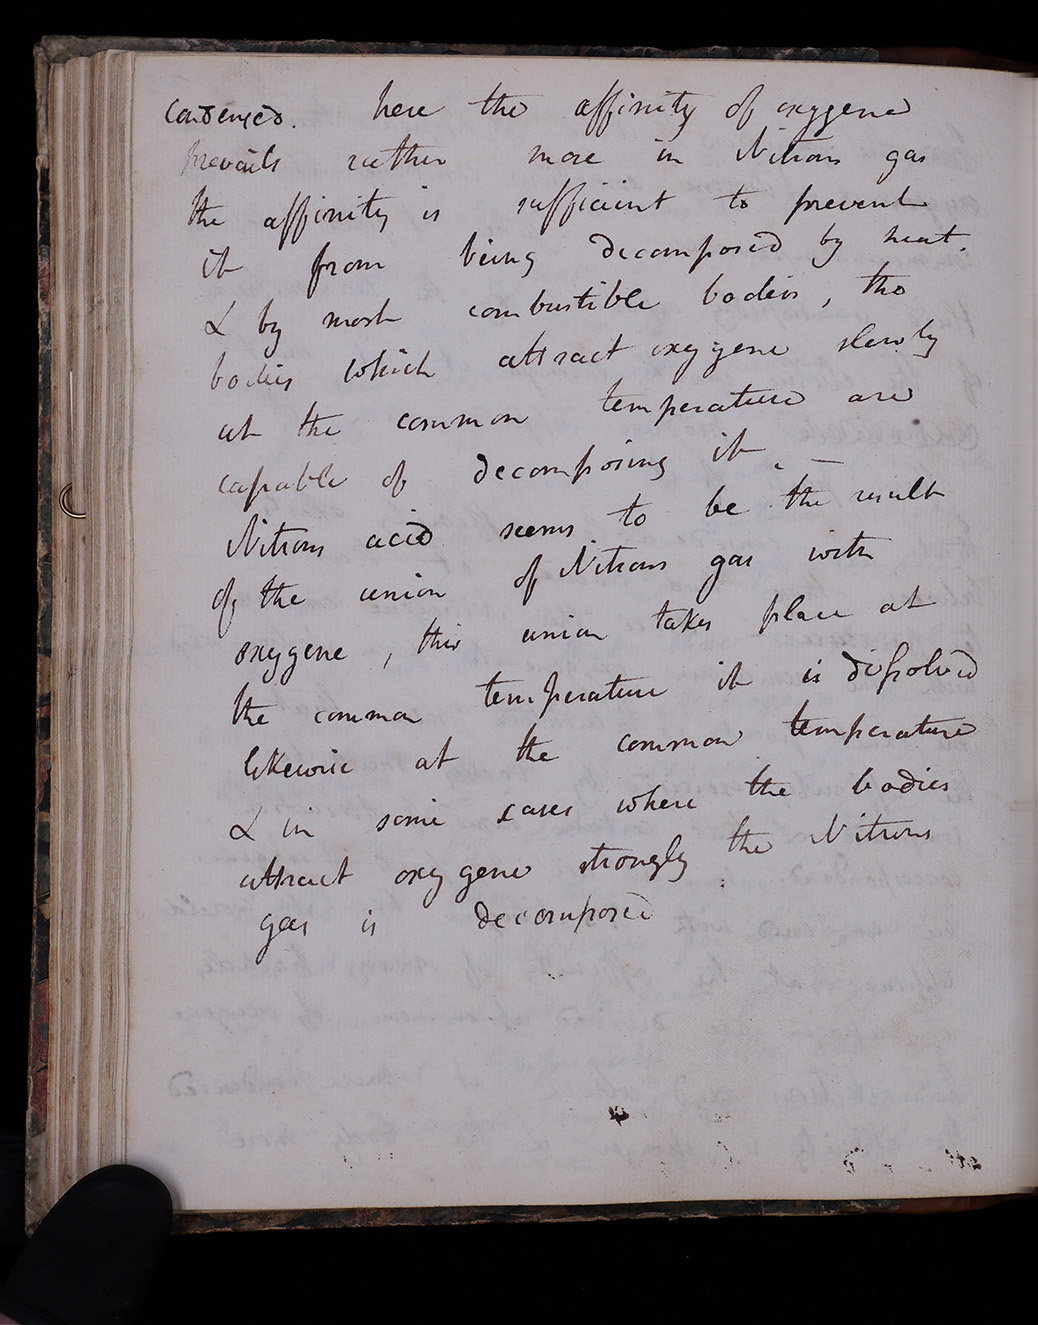 condensed. here the affinity of oxygene
prevails rather more in Nitrous gas
the affinity is sufficient to prevent
it from being decomposed by heat.
& by most combustible bodies, tho
bodies which attract oxygene slowly
at the common temperature are
capable of decomposing it. —
Nitrous acid seems to be the result
of the union of Nitrous gas with
oxygene, this union takes place at
the common temperature it is dissolved
likewise at the common temperature
& in some cases where the bodies
attract oxygene strongly the Nitrous
gas is decomposed